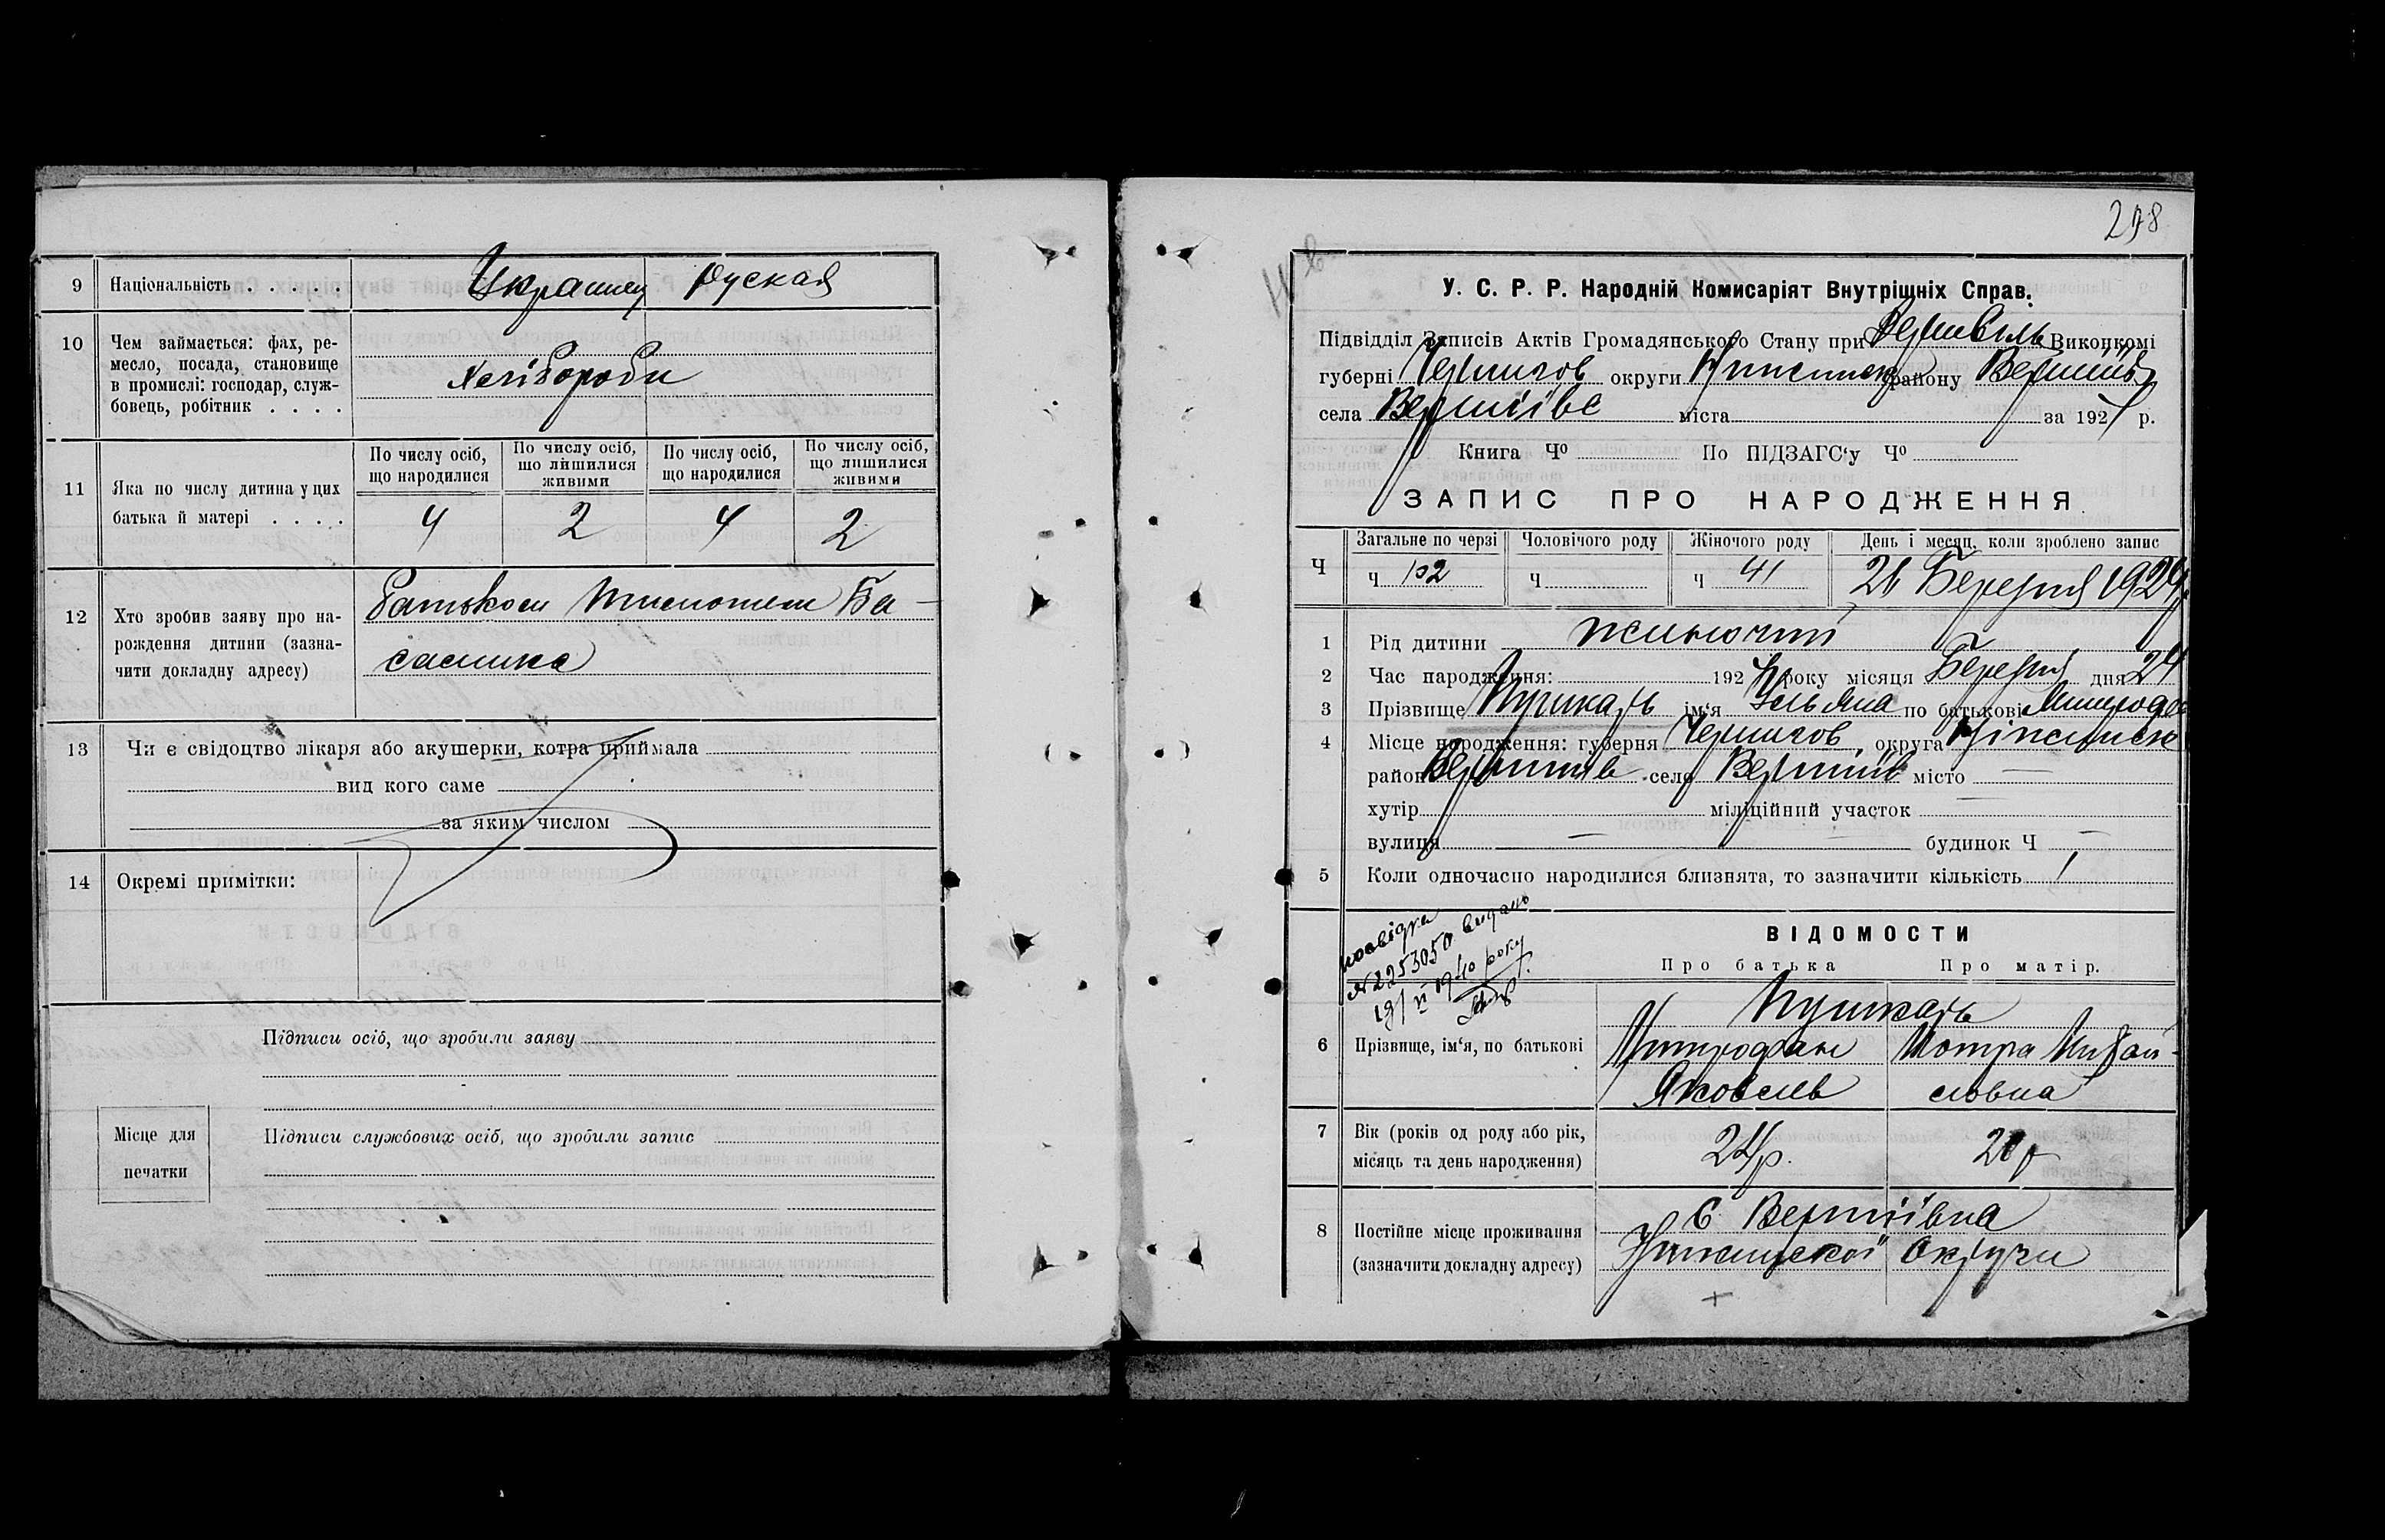 9 Національність . . . . . Украинец руская
10 Чем займається: фах, ре-
месло, посада, становище
в промислі: господар, служ-
бовець, робітник . . . .
Хлібороби
11 Яка по числу дитина у цих
батька й матері . . . .
По числу осіб, що народилися
По числу осіб, що лишилися живими
По числу осіб, що народилися
По числу осіб, що лишилися живими
4 2 4 2
12 Хто зробив заяву про на-
рождення дитини (зазна-
чити докладну адресу)
Батьком
13 Чи є свідоцтво лікаря або акушерки, котра приймала
вид кого саме
за яким числом
14 Окремі примітки:
Підписи осіб, що зробили заяву
Місце для
печатки
Підписи службових осіб, що зробили запис
298
У. С. Р. Р. Народній Комисаріят Внутрішніх Справ.
Підвідділ Записів Актів Громадянського Стану при Виконкомі
губерні Чернигов округи району Вертіїв
села Вертіївс міста за 1924 р.
Книга Ч⁰ По ПІДЗАГС‘у Ч⁰
ЗАПИС ПРО НАРОДЖЕННЯ
Ч
Загальне по черзі Чоловічого роду Жіночого роду День і месяц, коли зроблено запис
ч 102 ч ч 41 26 Березня 1924р
1 Рід дитини жиночий
2 Час народження: 1924 року місяця Березня дня 24
3 Прізвище Пушкарь ім‘я Ульяна по батькові Митрофа
4 Місце народження: губерня Чернигов, округа Ніжинск
район Вертиїв село Вертиїв місто —
хутір міліційний участок —
вулиця — будинок Ч —
5 Коли одночасно народилися близнята, то зазначити кількість 1
посвідка
№ 2253050 видано
19/VI 1940 року
ВІДОМОСТИ
Про батька Про матір.
Пушкарь
6 Прізвище, ім‘я, по батькові Митрофан Мотра Михай-
Яковлев ловна
7 Вік (років од роду або рік,
місяць та день народження)
24р.
8 Постійне місце проживання
(зазначити докладну адресу)
С Вертиївка
Ніжинської Округи